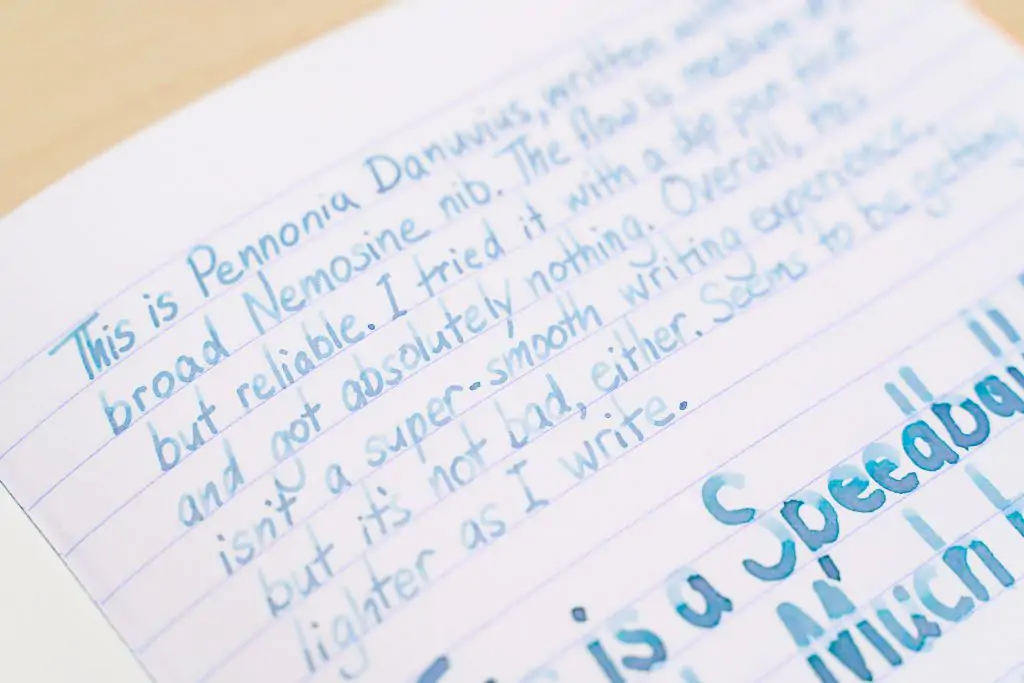 This is Pennonia Danuvius, written
broad Nemosine nib. The flow is medium
but reliable. I tried it with a dip pen first
and got absolutely nothing. Overall, this
isn't a super-smooth writing experience,
but it's not bad, either. Seems to be getting
lighter as I write.
is a Speedball
Much